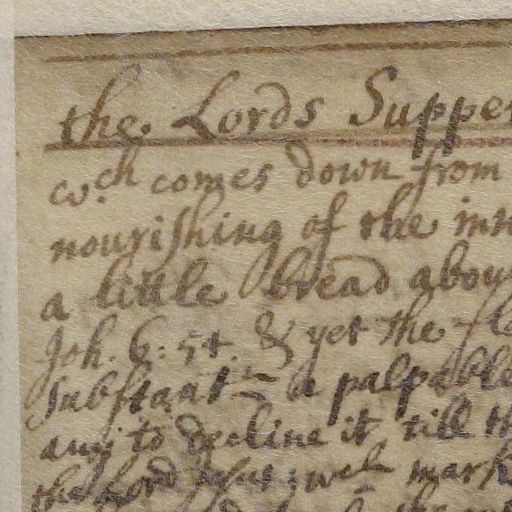 the Lords Supper
wch comes down from
nourishing of the inn
a little bread abou
Joh. 6: 54. & yet the fl
substant a palpable
any to decline it till th
the Lord wch mark